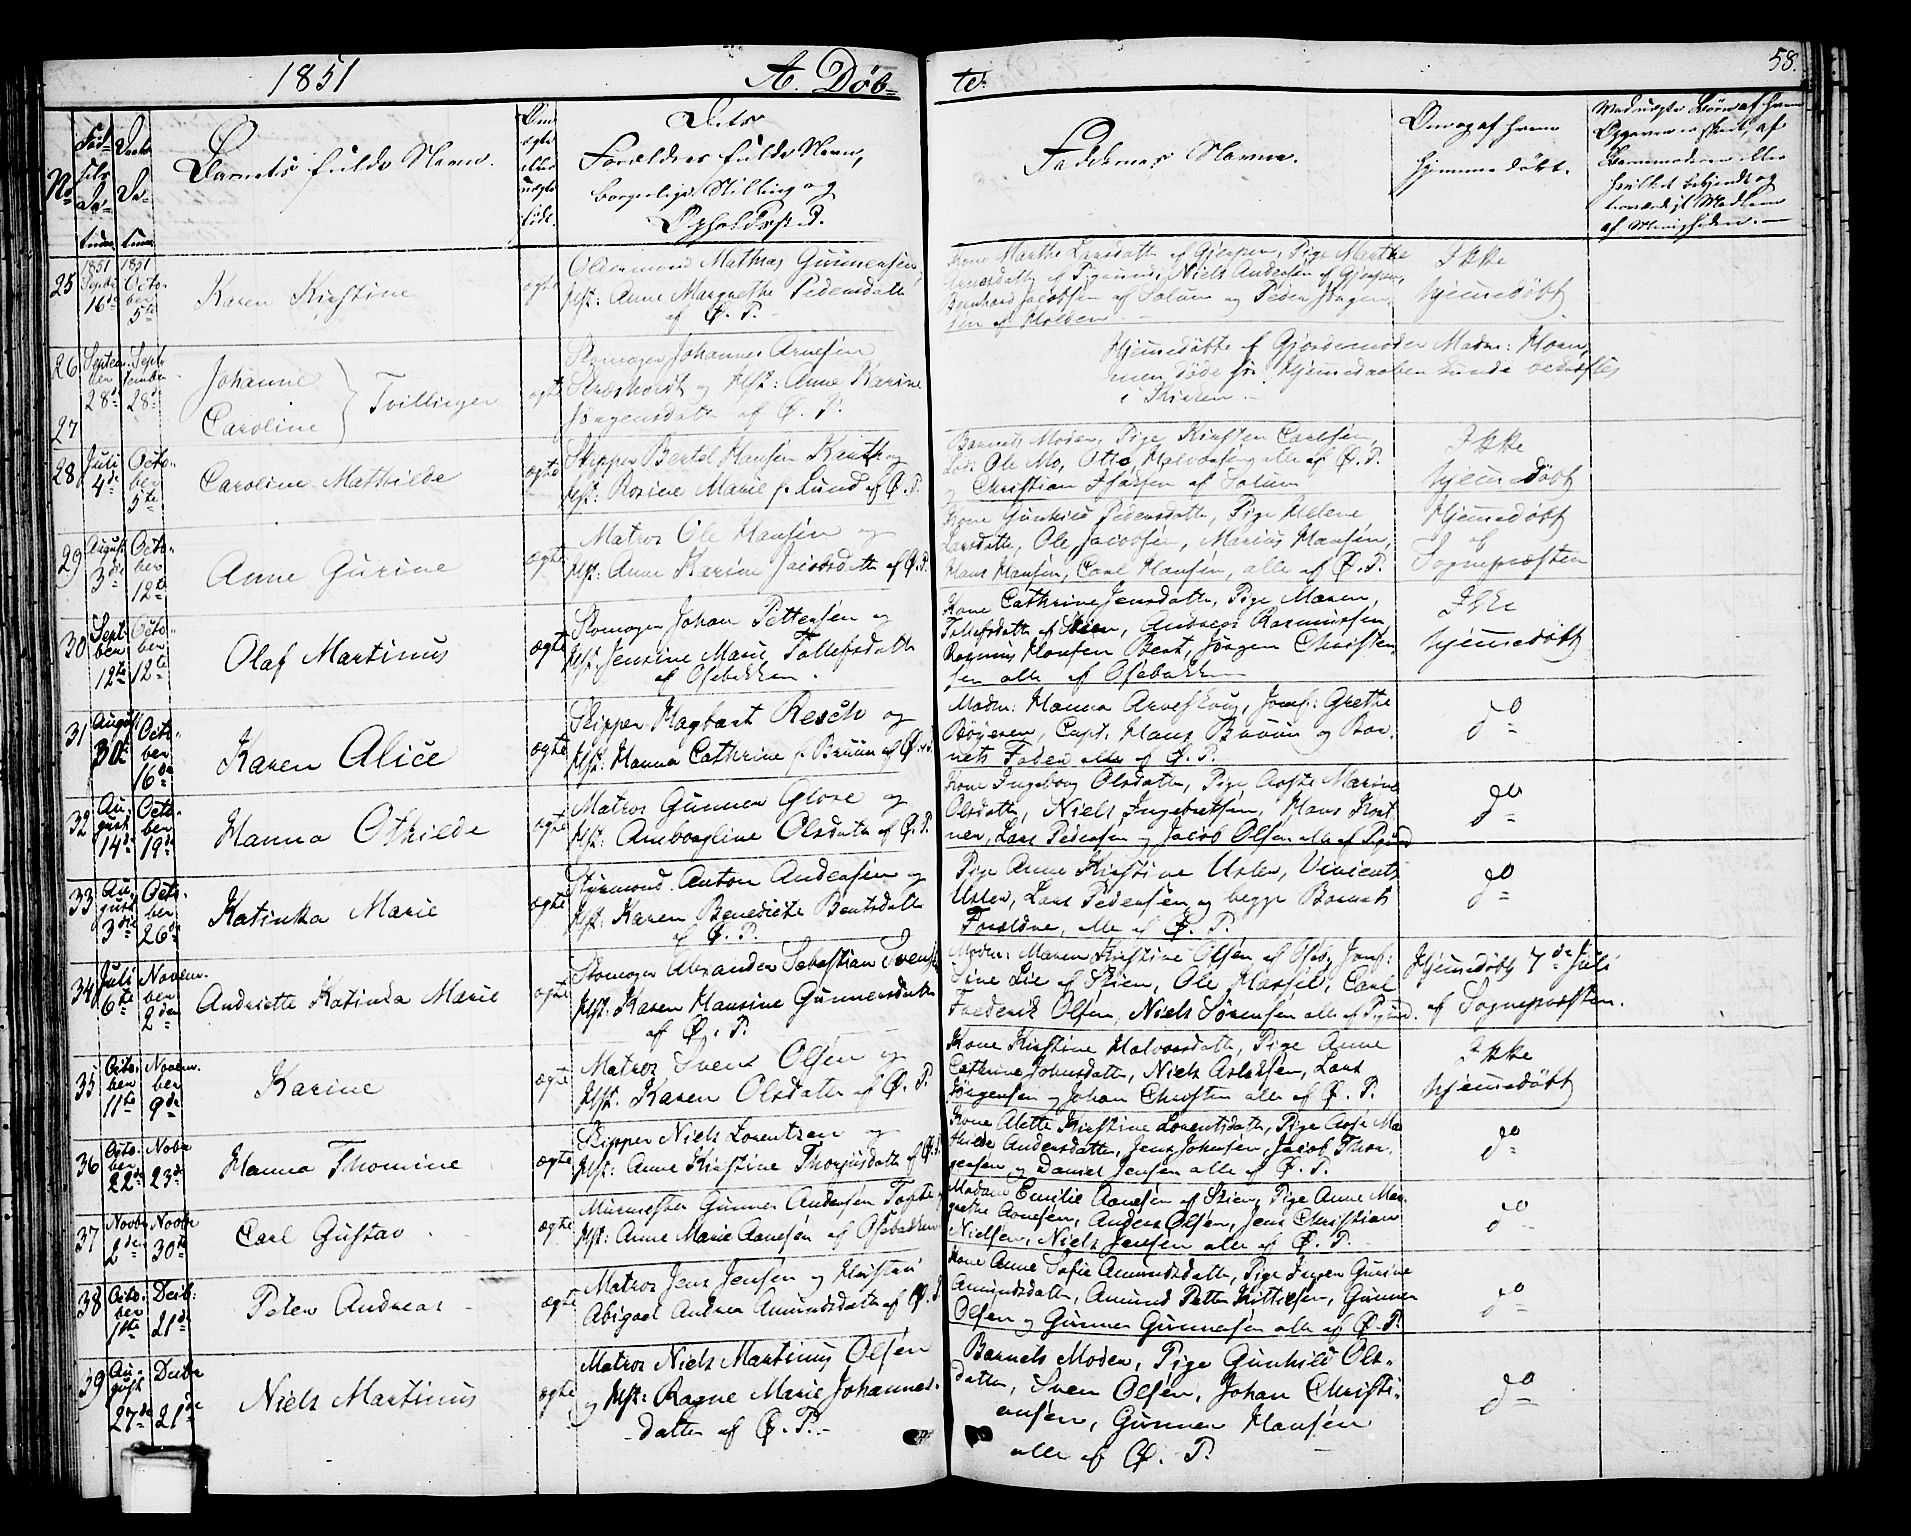 1851
A. Døb-
te.
58.
No
Fød-
sels
Da-
tum
Daabs
Da-
tum
Barnets fulde Navn.
Om
ægte
eller
uægte
født.
Dets
Forældres fulde Navn,
borgerlige Stilling og
Opholdssted.
Faddernes Navne.
Om og af hvem
hjemmedøbt.
25
1851
Septbr
16de
1851
Octo-
ber
5te
Karen Kirstine
ægte
Mathias Gunnersen
Hst: Anne Margrethe Pedersdatter
af Ø. P.
Kone Marthe Larsdatter af Gjerpen, Pige Marthe
Niels Andersen af Gjerpen,
Jacobsen af Solum og Peder Jørgen-
sen af Holden
Ikke
hjemmedøbt
26
27
Septem-
ber
28de
Septb
tember
28de
Johanne
Caroline
Tvillinger
ægte
Stomager Johannes Arnesen
og Hst: Anne Karine
Jørgensdatter af Ø. P.
Hjemmedøbte af Gjordemoder Madm: Horn,
men døde før Hjemmedaaben kunde bekræftes
i Kirken
28
Juli
4de
Octo-
ber
5te
Caroline Mathilde
ægte
Skipper Bertel Hansen Knuth og
Hst: Rosine Marie f. Lund af Ø. P.
Barnets Moder, Pige Kirsten Carlsen,
Ole Mo, Otto Halvorsen alle af Ø. P.
og Christian af Solum
Ikke
hjemmedøbt
29
August
3die
Octo-
ber
12te
Anne Gurine
ægte
Matros Ole Hansen og
Hst: Anne Karine Jacobsdatter af Ø. P.
Kone Gunhild Pedersdatter, Pige Helene
Larsdatter, Ole Jacobsen, Marius Hansen,
Hans Hansen, Carl Hansen, alle af Ø. P.
Hjemmedøbt
af
Sognepræsten
30
Sept
ber
12te
Octo-
ber
12te
Olaf Martinus
ægte
Stomager Johan Pettersen og
Hst: Jensine Marie Tollefsdatter
af Osebakken.
Kone Cathrine Jensdatter, Pige Maren
Tollefsdatter af Skien, Andreas Rasmussen,
Rasmus Hansen Bent, Jørgen Christen-
sen alle af Osebakken
Ikke
hjemmedøbt
31
August
30te
Octo-
ber
16de
Karen Alice
ægte
Skipper Hagbart Resch og
Hst: Hanna Cathrine f. Bruun af Ø. P.
Madm: Hanna Arveskoug, Jomf: Grethe
Bøyesen, Capt. Hans Bruun og Bar-
nets Fader alle af Ø. P.
do
32
Au-
gust
14de
Octo-
ber
19de
Hanna Othilde
ægte
Matros Gunner Glose og
Hst: Amborgline Olsdatter af Ø. P.
Kone Ingeborg Olsdatter, Pige Aaste Marine
Olsdatter, Niels Ingebretsen, Hans Kort-
ner, Lars Pedersen og Jacob Olsen alle af Porsgrund
do
33
Au-
gust
3die
Octo-
ber
26de
Katinka Marie
ægte
Styrmand Anton Andersen og
Hst: Karen Benedicte Bentsdatter
af Ø. P.
Pige Anne Kirstine Usler, Vincents
Usler, Lars Pedersen og begge Barnets
Forældre, alle af Ø. P.
do
34
Juli
6te
Novem-
ber
2den
Andriette Katinka Marie
ægte
Stomager Alexander Sebastian Svensen
Hst: Karen Hansine Gunnersdatter
af Ø. P.
Madm: Maren Kirstine Olsen af Oseb, Jomf:
Sine Lie af Skien, Ole Carl
Frederik Olsen, Niels Sørensen alle af Porsgrund.
Hjemmedøbt 7de Juli
af Sognepræsten.
35
Octo-
ber
11te
Novem-
ber
9de
Karine
ægte
Matros Svend Olsen og
Hst. Karen Olsdatter af Ø. P.
Kone Kirstine Halvorsdatter, Pige Anne
Cathrine Johnsdatter, Niels Aslaksen, Lars
Jørgensen og Johan Christen alle af Ø. P.
Ikke
hjemmedøbt
36
Octo-
ber
22de
Novbr
23de
Hanna Thomine
ægte
Skipper Niels Lorentzen og
Hst: Anne Kirstine Thorgusdatter af Ø. P.
Kone Alette Kirstine Lorentsdatter, Pige Aase Ma-
thilde Andersdatter, Jens Johnsen, Jacob Thor-
gersen og Daniel Jensen alle af Ø. P.
do
37
Novbr
2den
Novbr
30te
Carl Gustav
ægte
Murmester Gunner Andersen
Hst: Anne Marie Aanesen af Osebakken
Madam Emilie Aanesen af Skien, Pige Anne Mar-
grethe Aanesen, Anders Olsen, Jens Christian
Nielsen, Niels Jensen alle af Ø. P.
do
38
Octo-
ber
1ste
Decb:
21de
Peter Andreas
ægte
Matros Jens Jensen og Hustru
Abigael Andrea Amundsdatter af Ø. P.
Kone Anne Sofie Amundsdatter, Pige Inger Gurine
Amundsdatter, Amund Petter Kittilsen, Gunner
Olsen og Gunner Gunnersen alle af Ø. P.
do
39
Au-
gust
27de
Decbr
21de
Niels Martinus
ægte
Matros Niels Martinus Olsen
og Hst: Ragne Marie Johannes-
datter af Ø. P.
Barnets Moder, Pige Gunhild Ols-
datter, Sven Olsen, Johan Christi-
ansen, Gunner Hansen
alle af Ø. P.
do